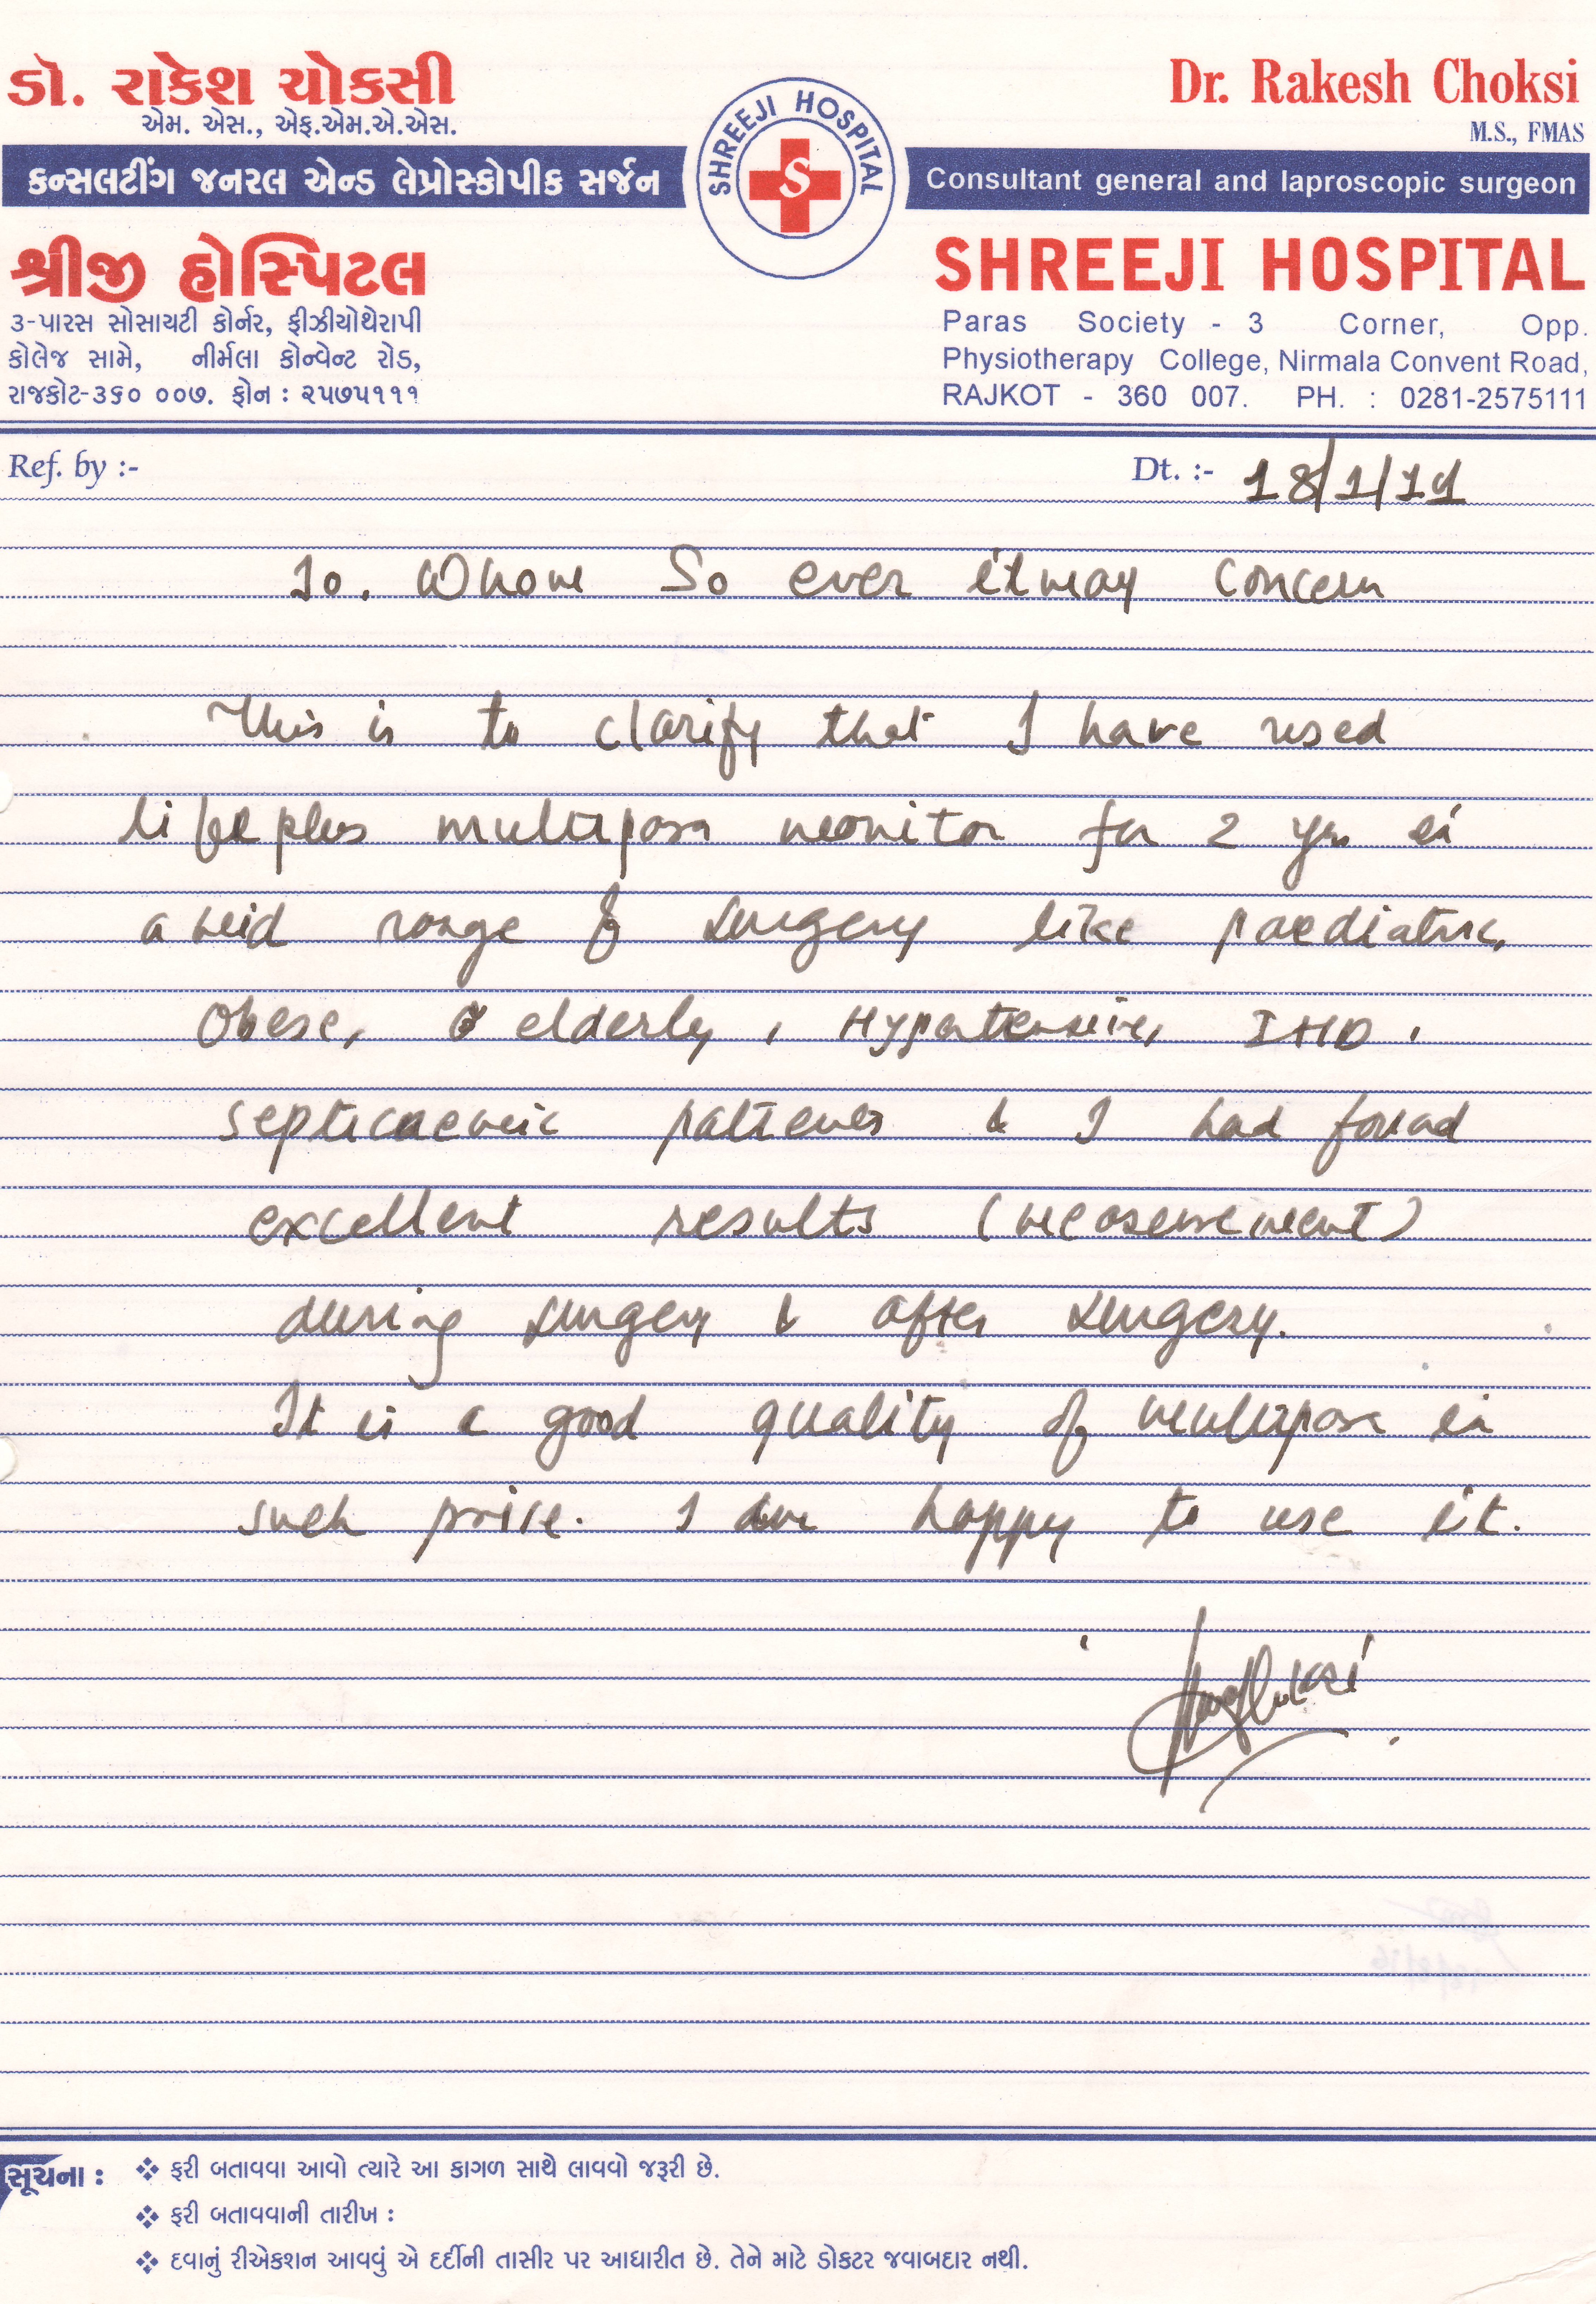 ડૉ. રાકેશ ચોકસી
એમ. એસ., એફ.એમ.એ.એસ.
કન્સલટીંગ જનરલ એન્ડ લેપ્રોસ્કોપીક સર્જન
શ્રીજી હોસ્પિટલ
૩-પારસ સોસાયટી કોર્નર, ફીઝીયોથેરાપી
કોલેજ સામે, નીર્મલા કોન્વેન્ટ રોડ,
રાજકોટ-૩૬૦ ૦૦૭. ફોન : ૨૫૭૫૧૧૧
SHREEJI HOSPITAL
S
Dr. Rakesh Choksi
M.S., FMAS
Consultant general and laproscopic surgeon
SHREEJI HOSPITAL
Paras Society - 3 Corner, Opp.
Physiotherapy College, Nirmala Convent Road,
RAJKOT - 360 007. PH. : 0281-2575111
Ref. by :-
Dt. :- 18/1/11
To. Whom So ever it may concern
This is to clarify that I have used
lifeplus multipara monitor for 2 yrs in
a wid range of surgery like paediatric,
Obese, elderly, Hypertensive, IHD,
septicaemic patients & I had found
excellent results (measurement)
during surgery & after surgery.
It is a good quality of multipara in
such price. I am happy to use it.
સૂચના :
❖ ફરી બતાવવા આવો ત્યારે આ કાગળ સાથે લાવવો જરૂરી છે.
❖ ફરી બતાવવાની તારીખ :
❖ દવાનું રીએકશન આવવું એ દર્દીની તાસીર પર આધારીત છે. તેને માટે ડોકટર જવાબદાર નથી.